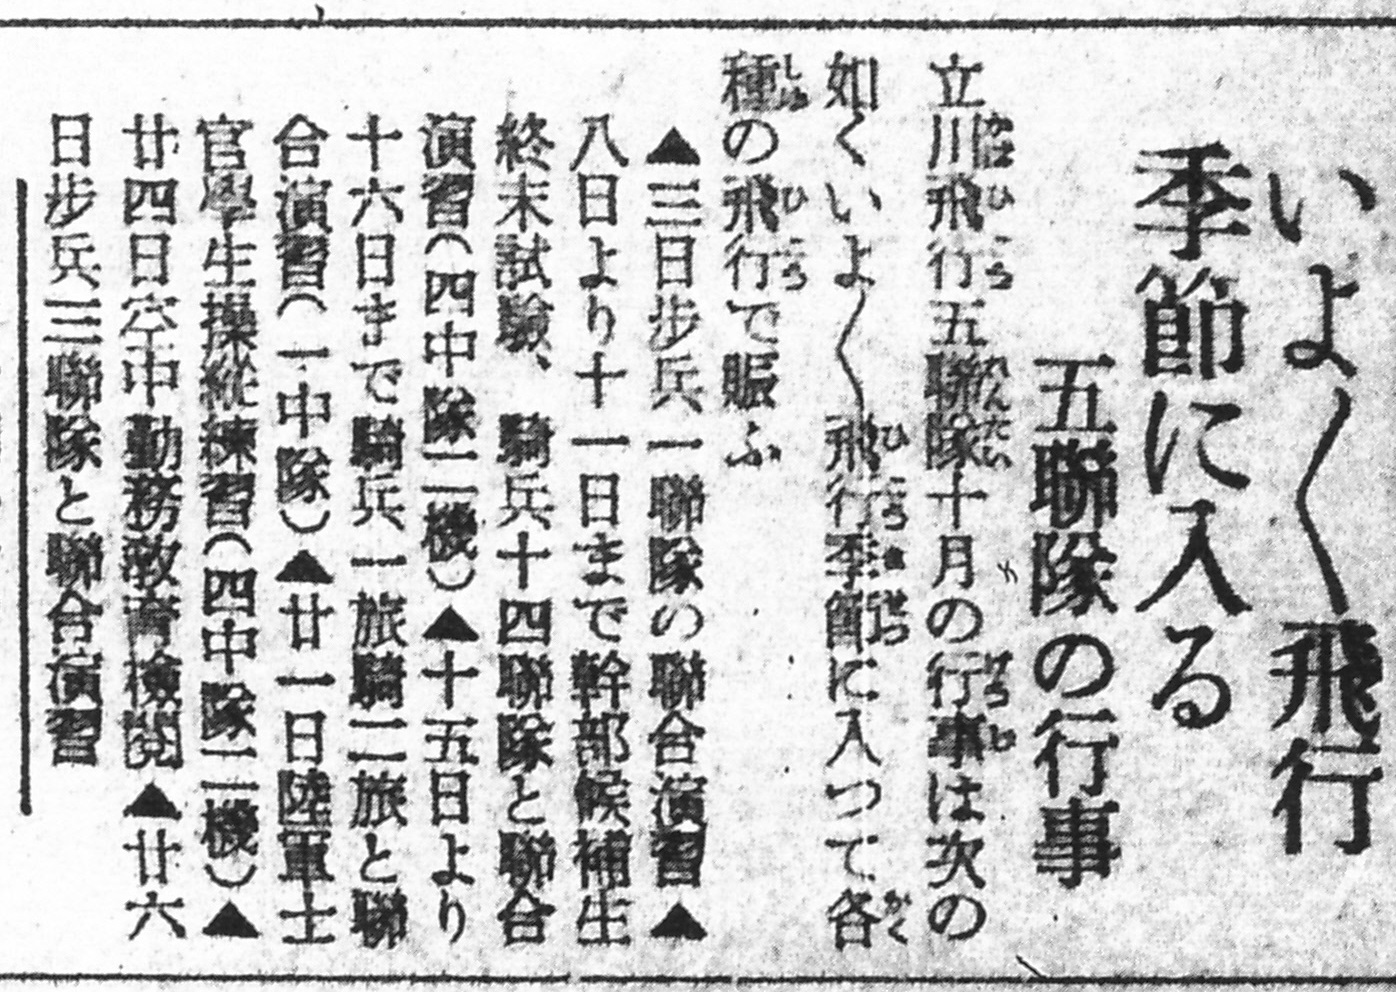 いよ〱飛行
季節に入る
五聯隊の行事
立川飛行五聯隊十月の行事は次の
如くいよ〱飛行季節に入つて各
種の飛行で賑ふ
▲三日歩兵一聯隊の聯合演習▲
八日より十一日まで幹部候補生
終末試験、騎兵十四聯隊と聯合
演習(四中隊二機)▲十五日より
十六日まで騎兵一旅騎二旅と聯
合演習(一中隊)▲廿一日陸軍士
官學生操縦練習(四中隊二機)▲
廿四日空中勤務教育檢閲▲廿六
日歩兵三聯隊と聯合演習